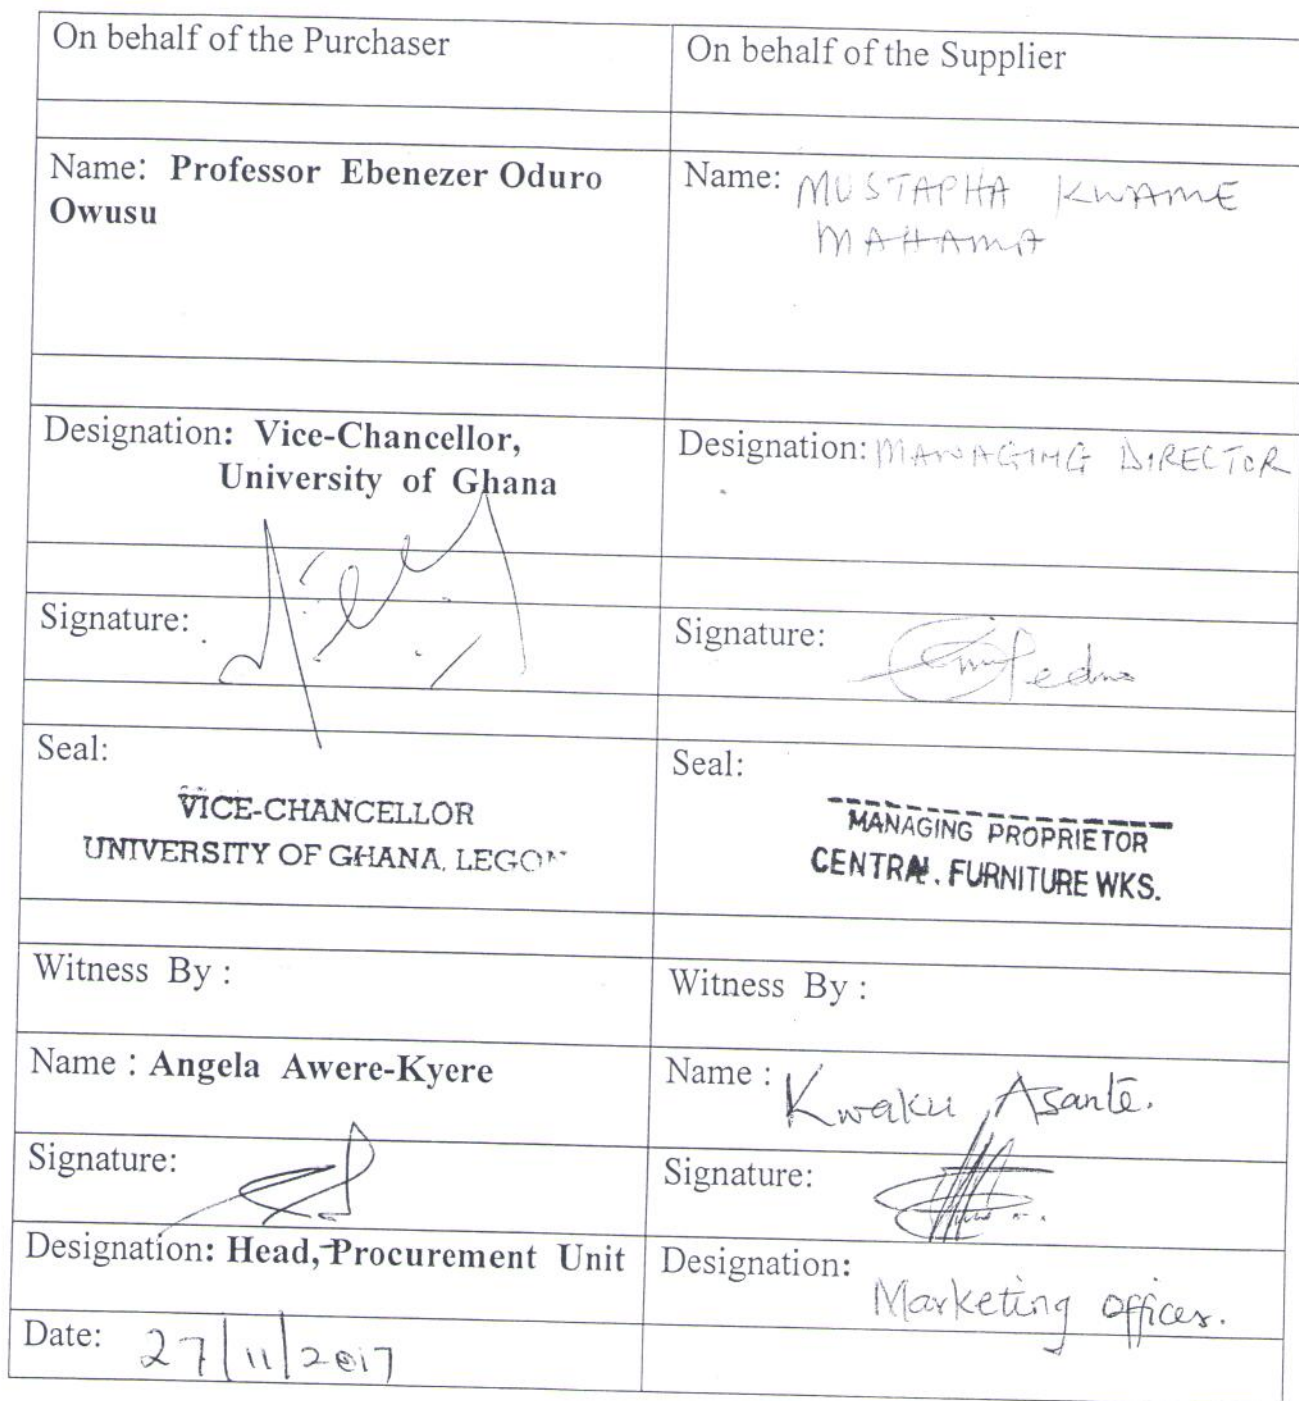 On behalf of the Purchaser
On behalf of the Supplier
Name: Professor Ebenezer Oduro
Owusu
Name: MUSTAPHA KWAME
MAHAMA
Designation: Vice-Chancellor,
University of Ghana
Designation: MANAGING DIRECTOR
Signature:
Signature:
Seal:
VICE-CHANCELLOR
UNIVERSITY OF GHANA, LEGON
Seal:
MANAGING PROPRIETOR
CENTRAL FURNITURE WKS.
Witness By :
Witness By :
Name : Angela Awere-Kyere
Name : Kwaku Asante.
Signature:
Signature:
Designation: Head, Procurement Unit
Designation:
Marketing officer.
Date: 27/11/2017